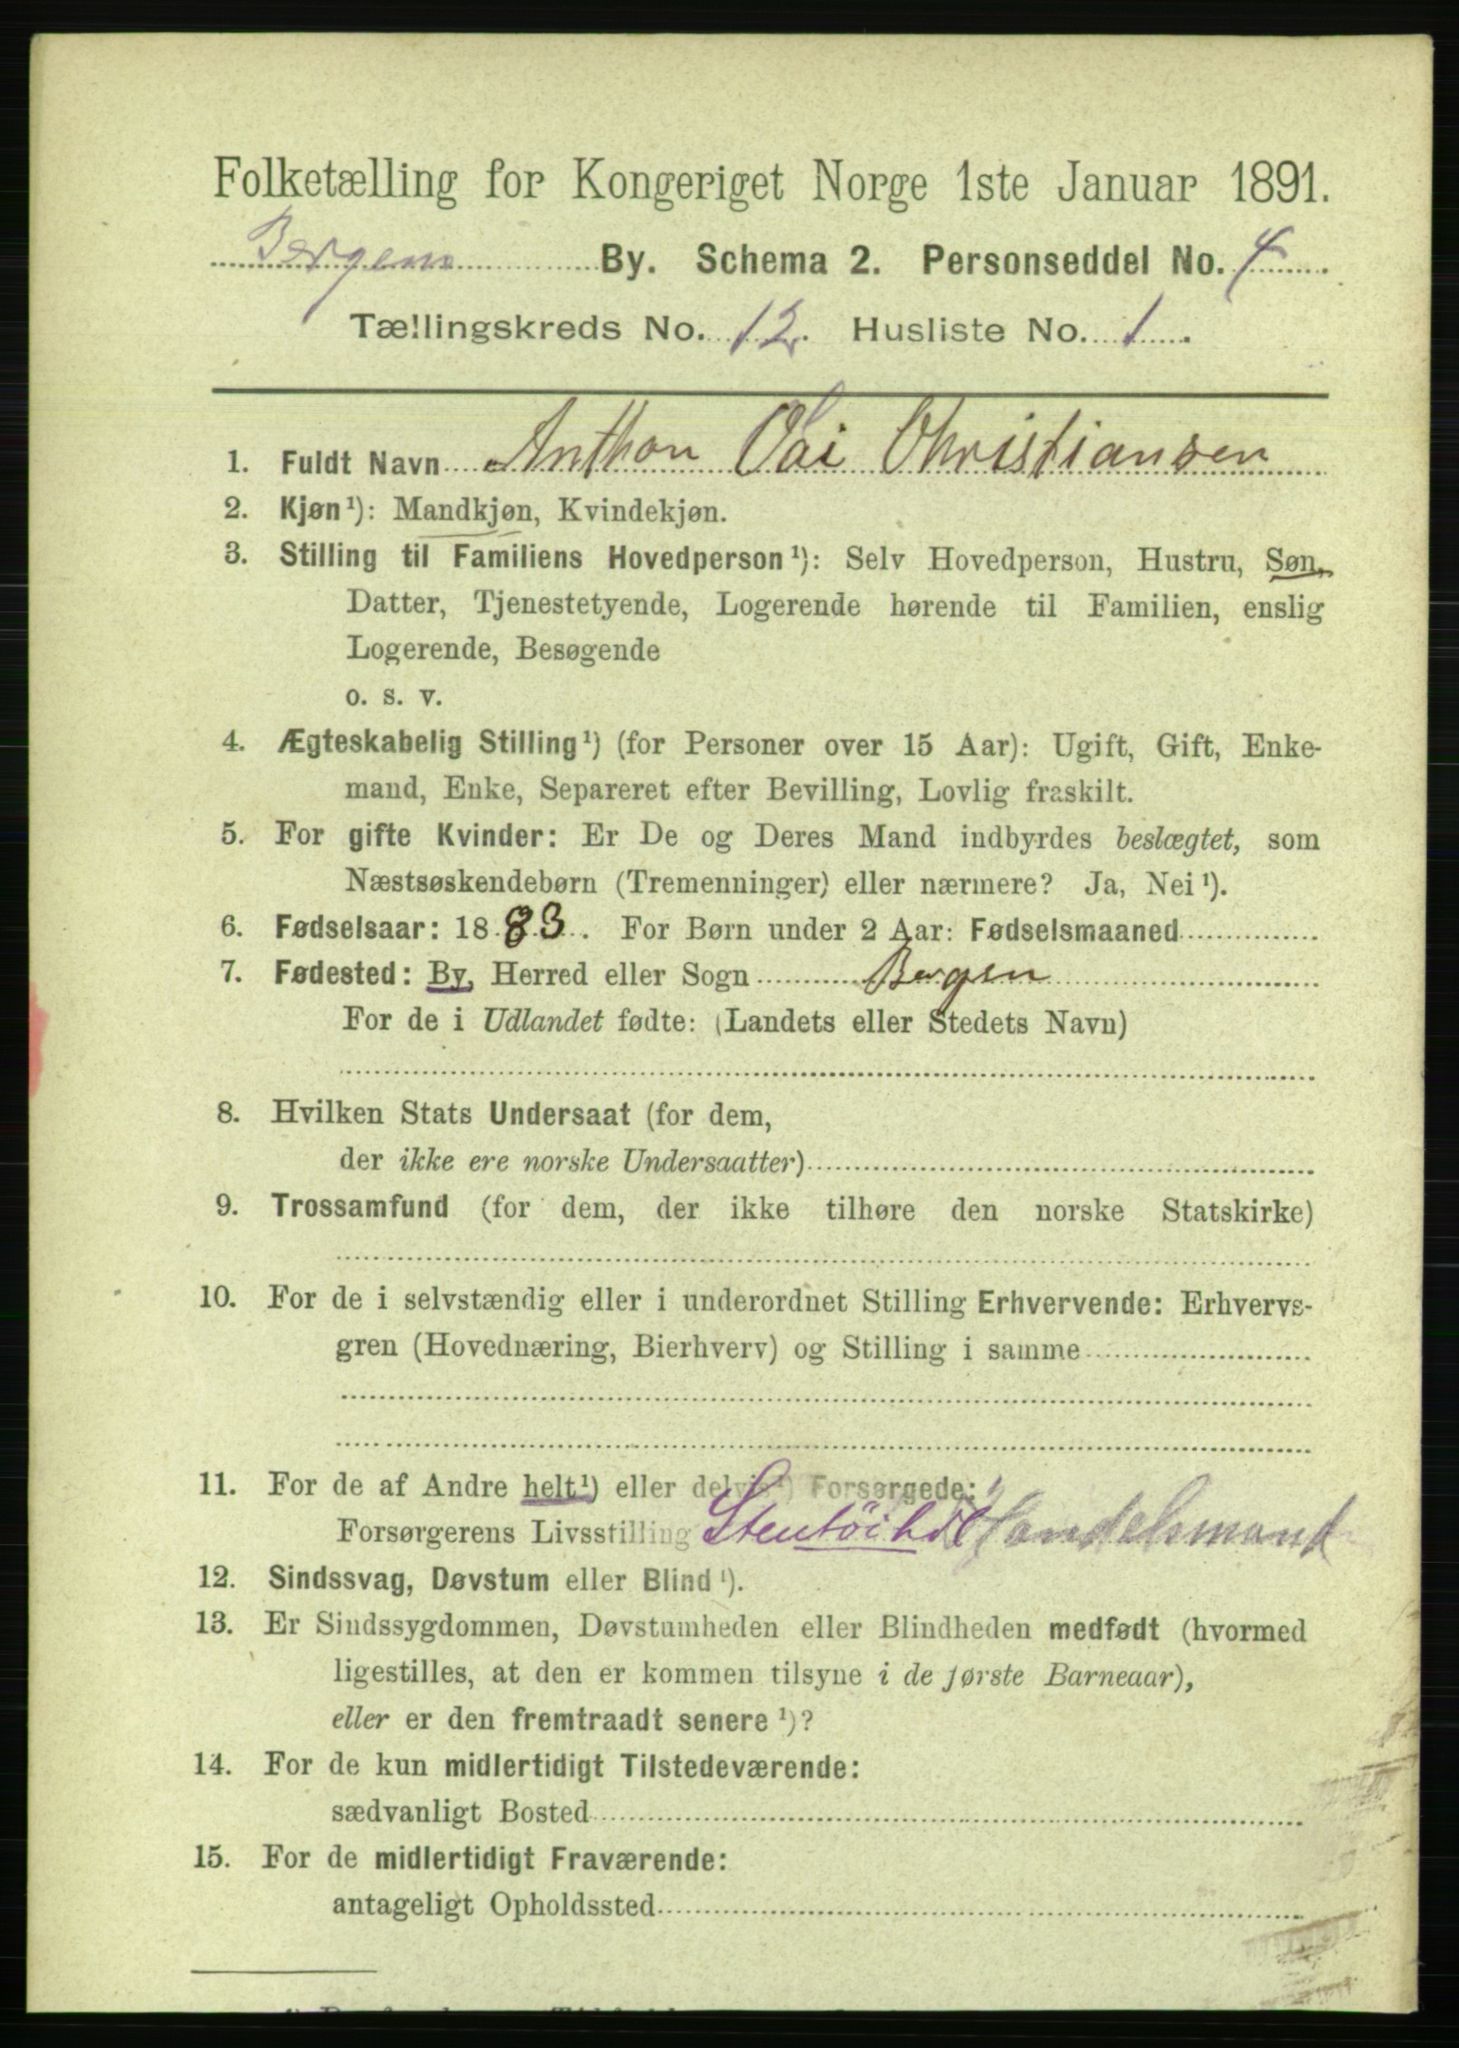 Folketælling for Kongeriget Norge 1ste Januar 1891.
Bergens By. Schema 2. Personseddel No. 4.
Tællingskreds No. 12. Husliste No. 1.
1. Fuldt Navn Anthon Olai Christiansen
2. Kjøn¹): Mandkjøn, Kvindekjøn.
3. Stilling til Familiens Hovedperson¹): Selv Hovedperson, Hustru, Søn,
Datter, Tjenestetyende, Logerende hørende til Familien, enslig
Logerende, Besøgende
o. s. v.
4. Ægteskabelig Stilling¹) (for Personer over 15 Aar): Ugift, Gift, Enke-
mand, Enke, Separeret efter Bevilling, Lovlig fraskilt.
5. For gifte Kvinder: Er De og Deres Mand indbyrdes beslægtet, som
Næstsøskendebørn (Tremenninger) eller nærmere? Ja, Nei¹).
6. Fødselsaar: 1883. For Børn under 2 Aar: Fødselsmaaned
7. Fødested: By, Herred eller Sogn Bergen
For de i Udlandet fødte: (Landets eller Stedets Navn)
8. Hvilken Stats Undersaat (for dem,
der ikke ere norske Undersaatter)
9. Trossamfund (for dem, der ikke tilhøre den norske Statskirke)
10. For de i selvstændig eller i underordnet Stilling Erhvervende: Erhvervs-
gren (Hovednæring, Bierhverv) og Stilling i samme
11. For de af Andre helt¹) eller delvis¹) Forsørgede:
Forsørgerens Livsstilling Stentöihdl Handelsmand
12. Sindssvag, Døvstum eller Blind¹).
13. Er Sindssygdommen, Døvstumheden eller Blindheden medfødt (hvormed
ligestilles, at den er kommen tilsyne i de første Barneaar),
eller er den fremtraadt senere¹)?
14. For de kun midlertidigt Tilstedeværende:
sædvanligt Bosted
15. For de midlertidigt Fraværende:
antageligt Opholdssted